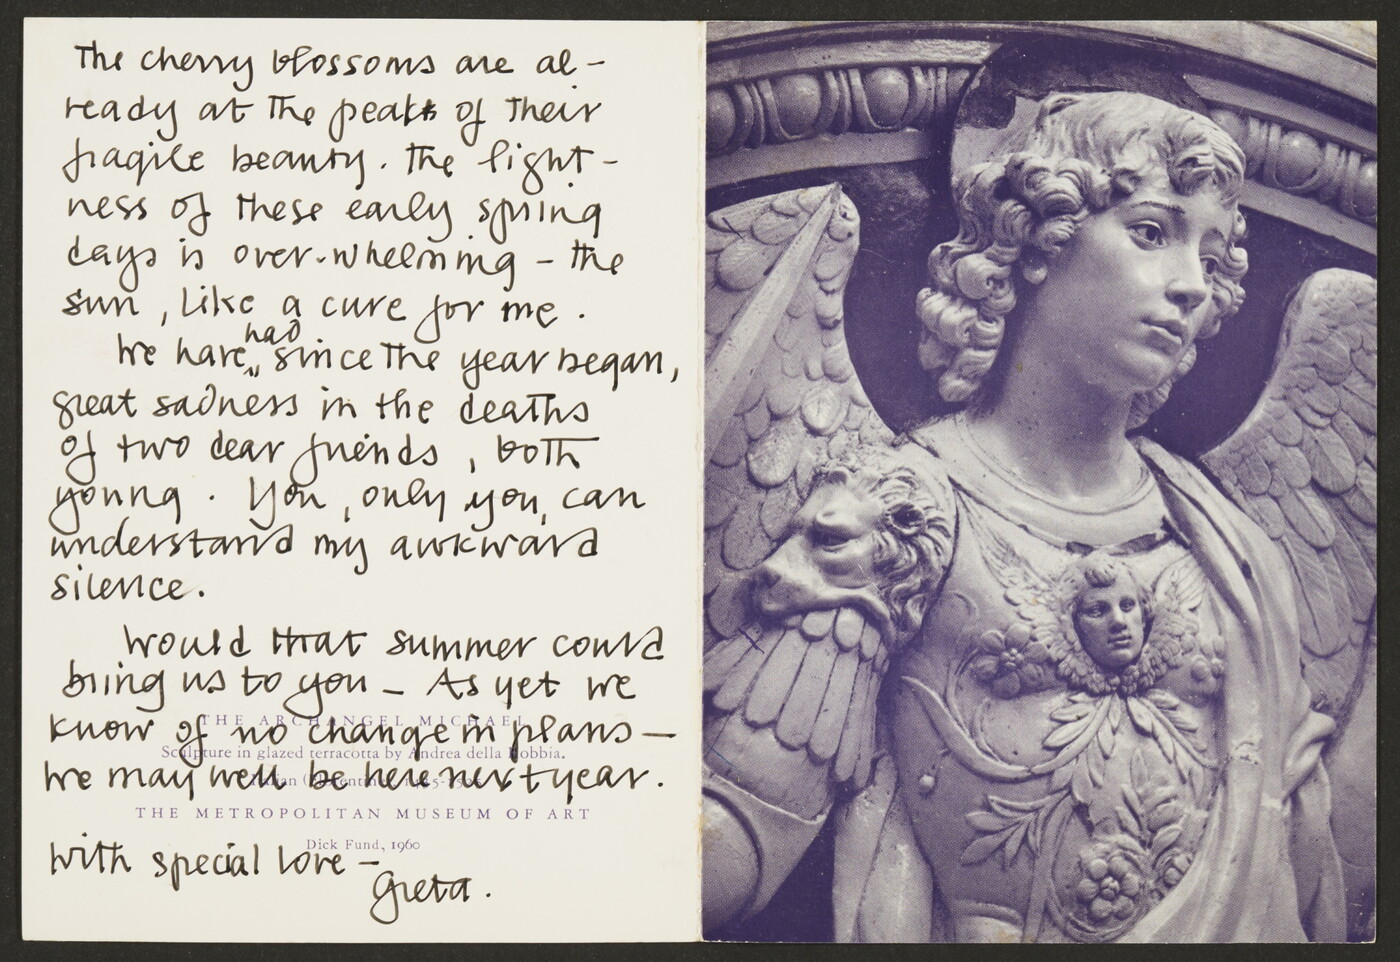 The cherry blossoms are al-
ready at the peak of their
fragile beauty. The light-
ness of these early spring
days is over-whelming - the
sun, like a cure for me.
We have had since the year began,
great sadness in the deaths
of two dear friends, both
young. You, only you, can
understand my awkward
silence.
Would that summer could
bring us to you - As yet we
know of no change in plans -
We may well be here next year.
With special love -
Greta.
THE ARCHANGEL MICHAEL
Sculpture in glazed terracotta by Andrea della Robbia.
THE METROPOLITAN MUSEUM OF ART
Dick Fund, 1960